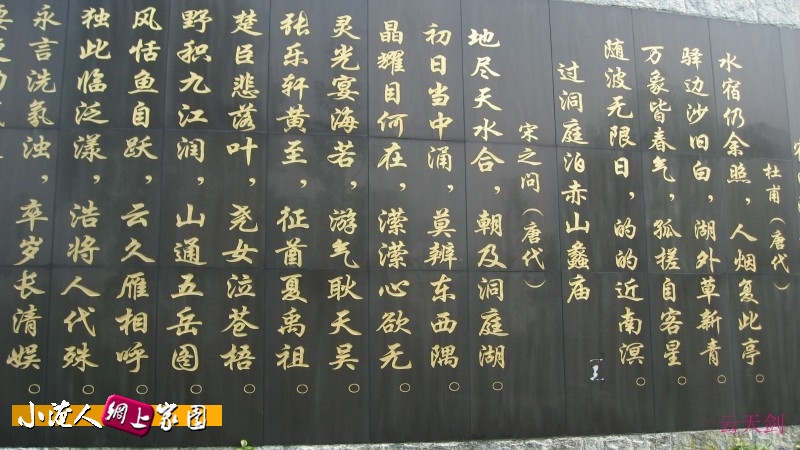 杜甫（唐代）
水宿仍余照，人烟复此亭。
驿边沙旧白，湖外草新青。
万象皆春气，孤槎自客星。
随波无限日，的的近南溟。
过洞庭泊赤山蠡庙
宋之问（唐代）
地尽天水合，朝及洞庭湖。
初日当中涌，莫辨东西隅。
晶耀目何在，潆潆心欲无。
灵光宴海若，游气耿天吴。
张乐轩黄至，征酋夏禹祖。
楚臣悲落叶，尧女泣苍梧。
野积九江润，山通五岳图。
风恬鱼自跃，云久雁相呼。
独此临泛漾，浩将人代殊。
永言洗氛浊，卒岁长清娱。
小渔人网上家园
云天剑